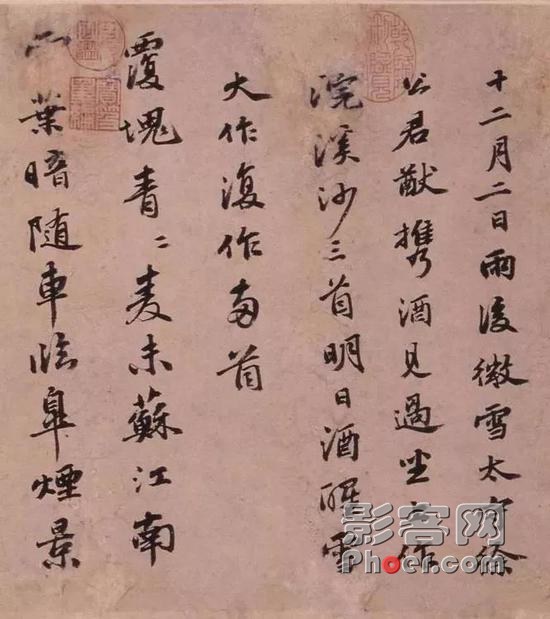 十二月二日雨後微雪太守徐
公君猷携酒見過坐上作
浣溪沙三首明日酒醒雪
大作復作兩首
覆塊青〻麥未蘇江南
雲葉暗隨車臨皋煙景
影客网
Phoer.com